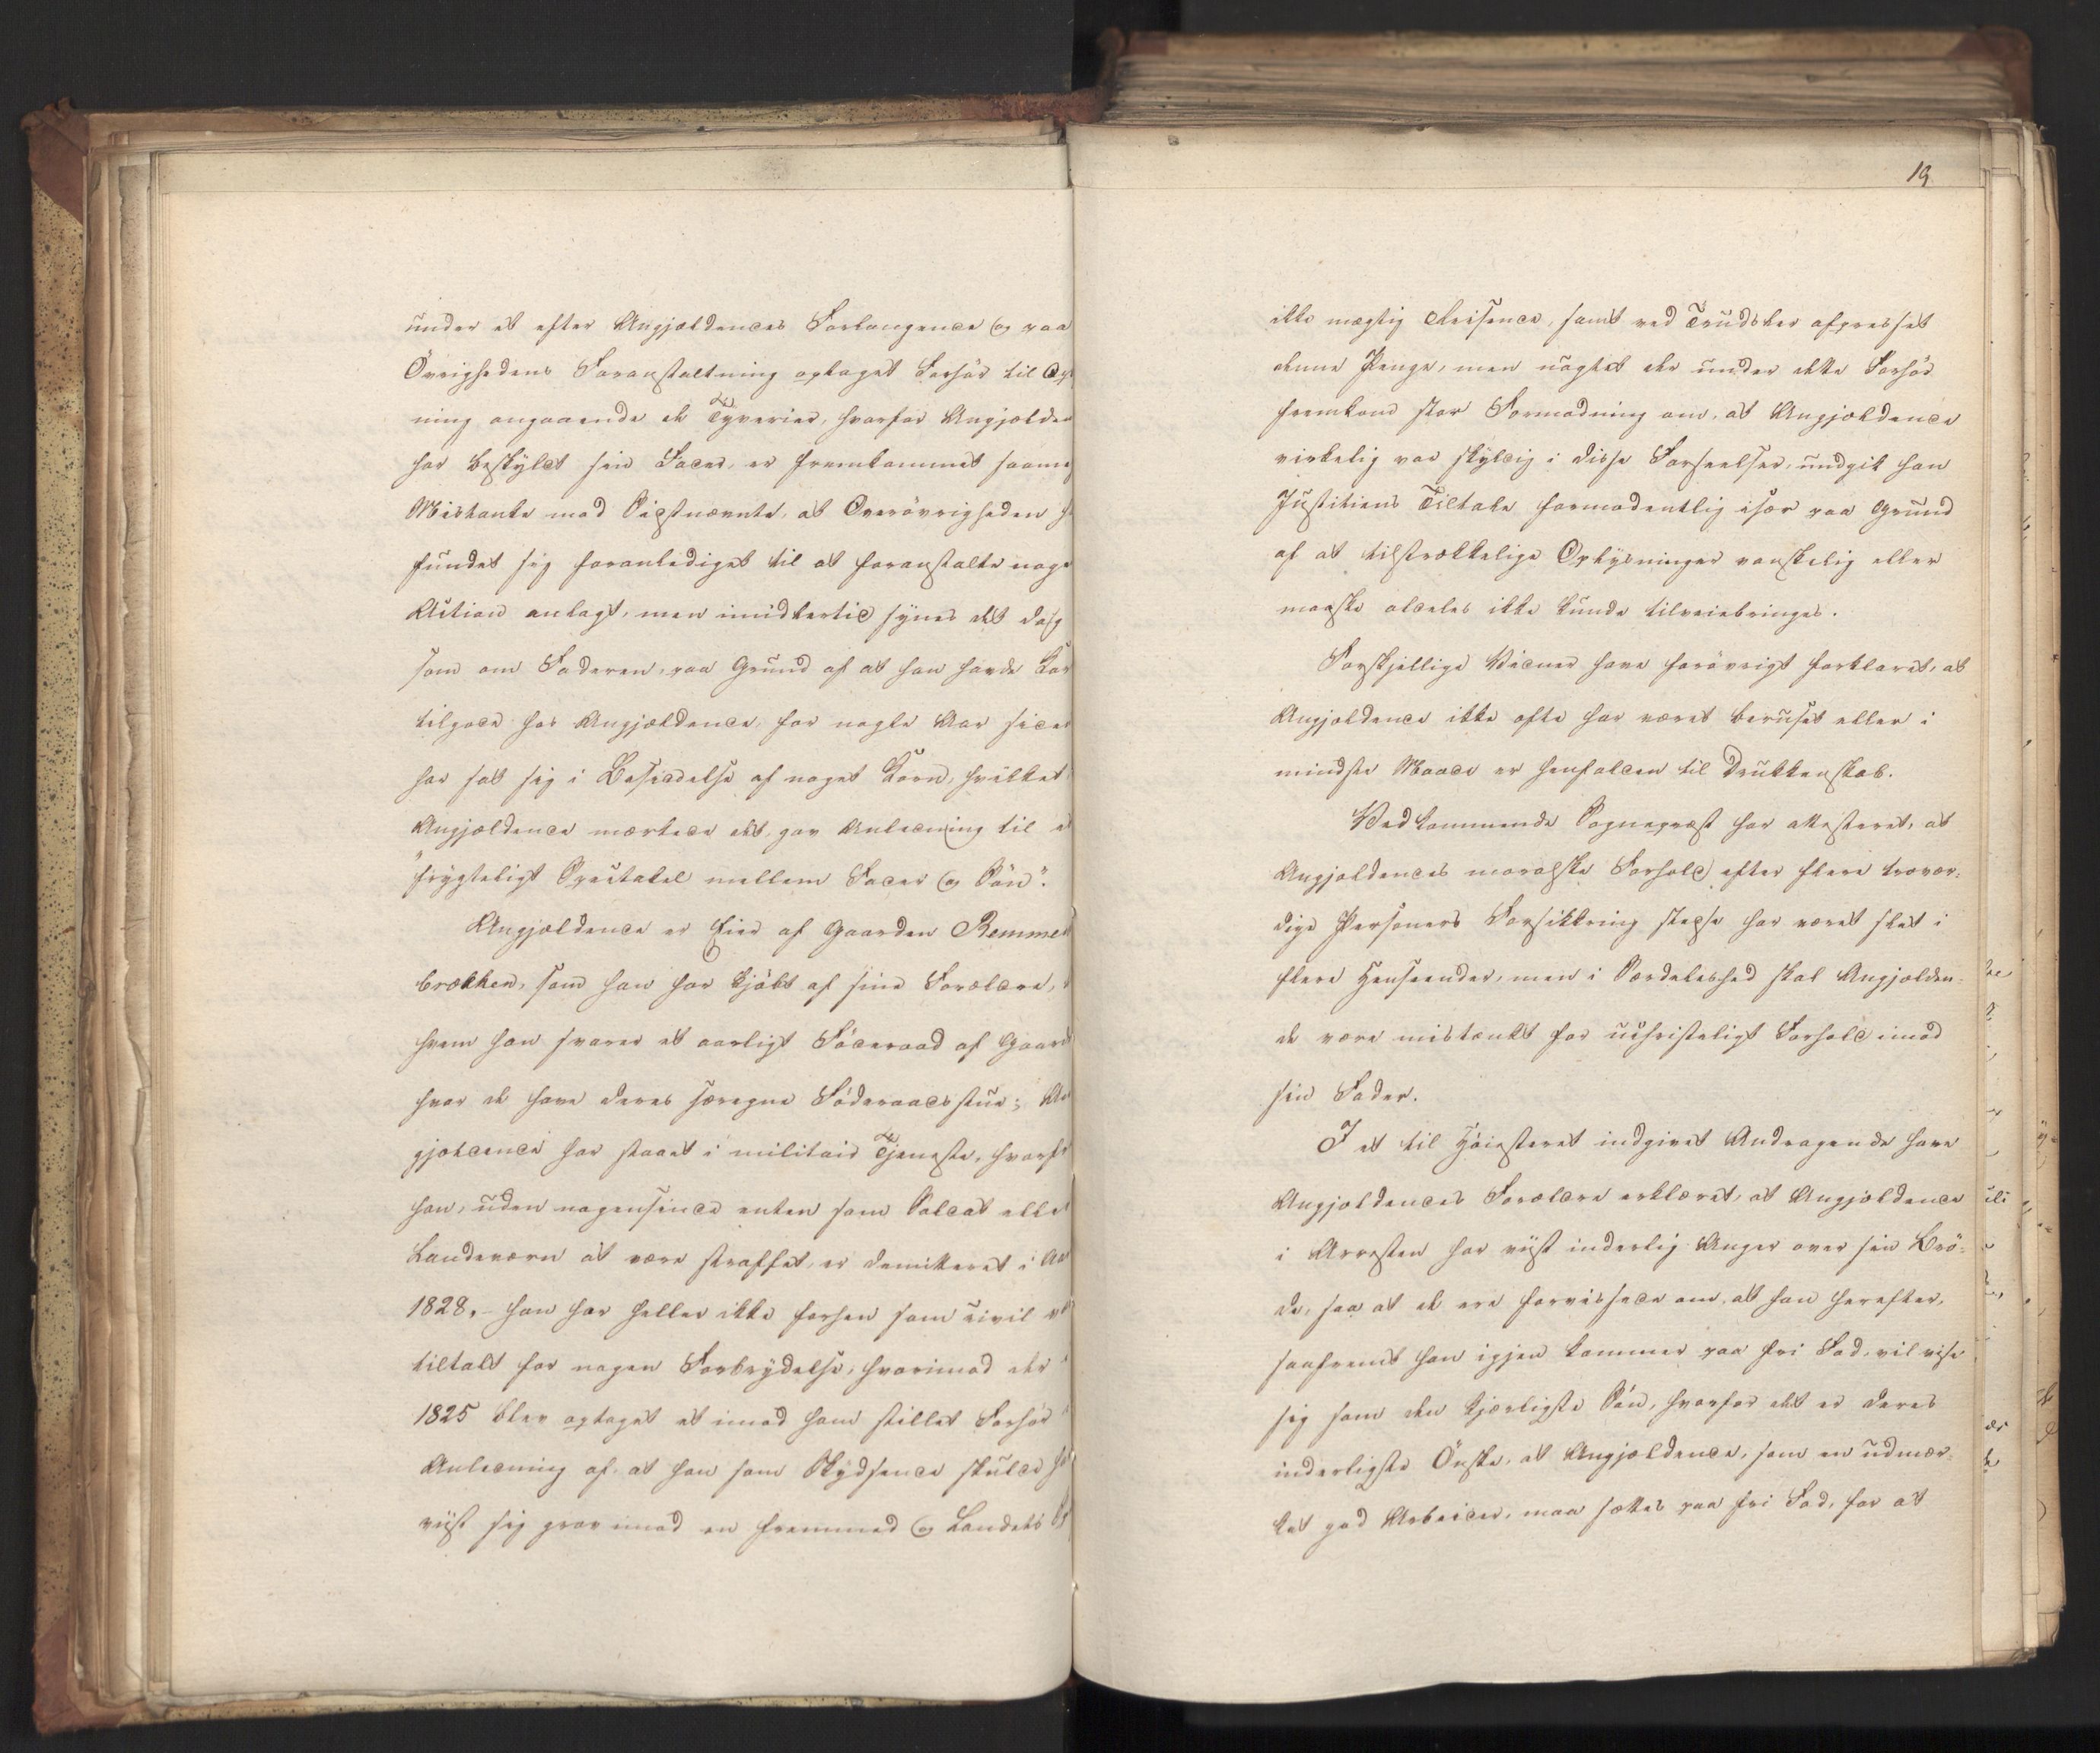 under et efter Angjældendes Forlangende og paa
Övrighedens Foranstaltning optaget Forhör til Op
ning angaaende de Tyverier, hvorfor Angjælden
har beskyldt sin Fader, er fremkommet saame
Mistanke mod Sidstnævnte, at Overövrigheden h
fundet sig foranlediget til at foranstalte noge
Aktion anlagt, men imidlertid synes det dog
som om Faderen, paa Grund af at han havde Kor
tilgode hos Angjældende, for nogle Aar siden
har sat sig i Besiddelse af noget Korn, hvilket
Angjældende mærkede det, gav Anledning til et
"frygteligt Spectakel mellem Fader og Sön".
Angjældende er Eier af Gaarden Remmes
brækken, som han har kjöbt af sine Forældre,
hvem han svarer et aarligt Föderaad af Gaard
hvor de have deres særegne Föderaadsstue; An
gjældende har staaet i militair Tjeneste, hvorf
han, uden nogensinde enten som Soldat elle
Landeværn at være straffet, er demitteret i Aa
1828, - han har heller ikke forhen som civil v
tiltalt for nogen Forbrydelse, hvorimod der i
1825 blev optaget et imod ham stillet Forhör
Anledning af, at han som Skydsende skulde h
viist sig grov imod en fremmed og Landets S
19
ikke mægtig Reisende, samt ved Trudsler afpresset
denne Penge, men uagtet der under dette Forhör
fremkom stor Formodning om, at Angjældende
virkelig var skyldig i disse Forseelser, undgik han
Justitiens Tiltale formodentlig især paa Grund
af at tilstrækkelige Oplysninger vanskelig eller
maaske aldeles ikke kunde tilveiebringes.
Forskjellige Vidner have forövrigt forklaret, at
Angjældende ikke ofte har været beruset eller i
mindste Maade er henfalden til Drukkenskab.
Vedkommende Sognepræst har attesteret, at
Angjældendes moralske Forhold efter flere trovær-
dige Personers Forsikkring stedse har været slet i
flere Henseender, men i Særdeleshed skal Angjælden-
de være mistænkt for uchristeligt Forhold imod
sin Fader.
I et til Höiesteret indgivet Andragende have
Angjældendes Forældre erklæret, at Angjældende
i Arresten har viist inderlig Anger over sin Brö-
de, saa at de ere forvissede om, at han herefter,
saafremt han igjen kommer paa fri Fod, vil vise
sig som den kjærligste Sön, hvorfor det er deres
inderligste Önske, at Angjældende, som en udmær-
ket god Arbeider, maa sættes paa fri Fod, for at